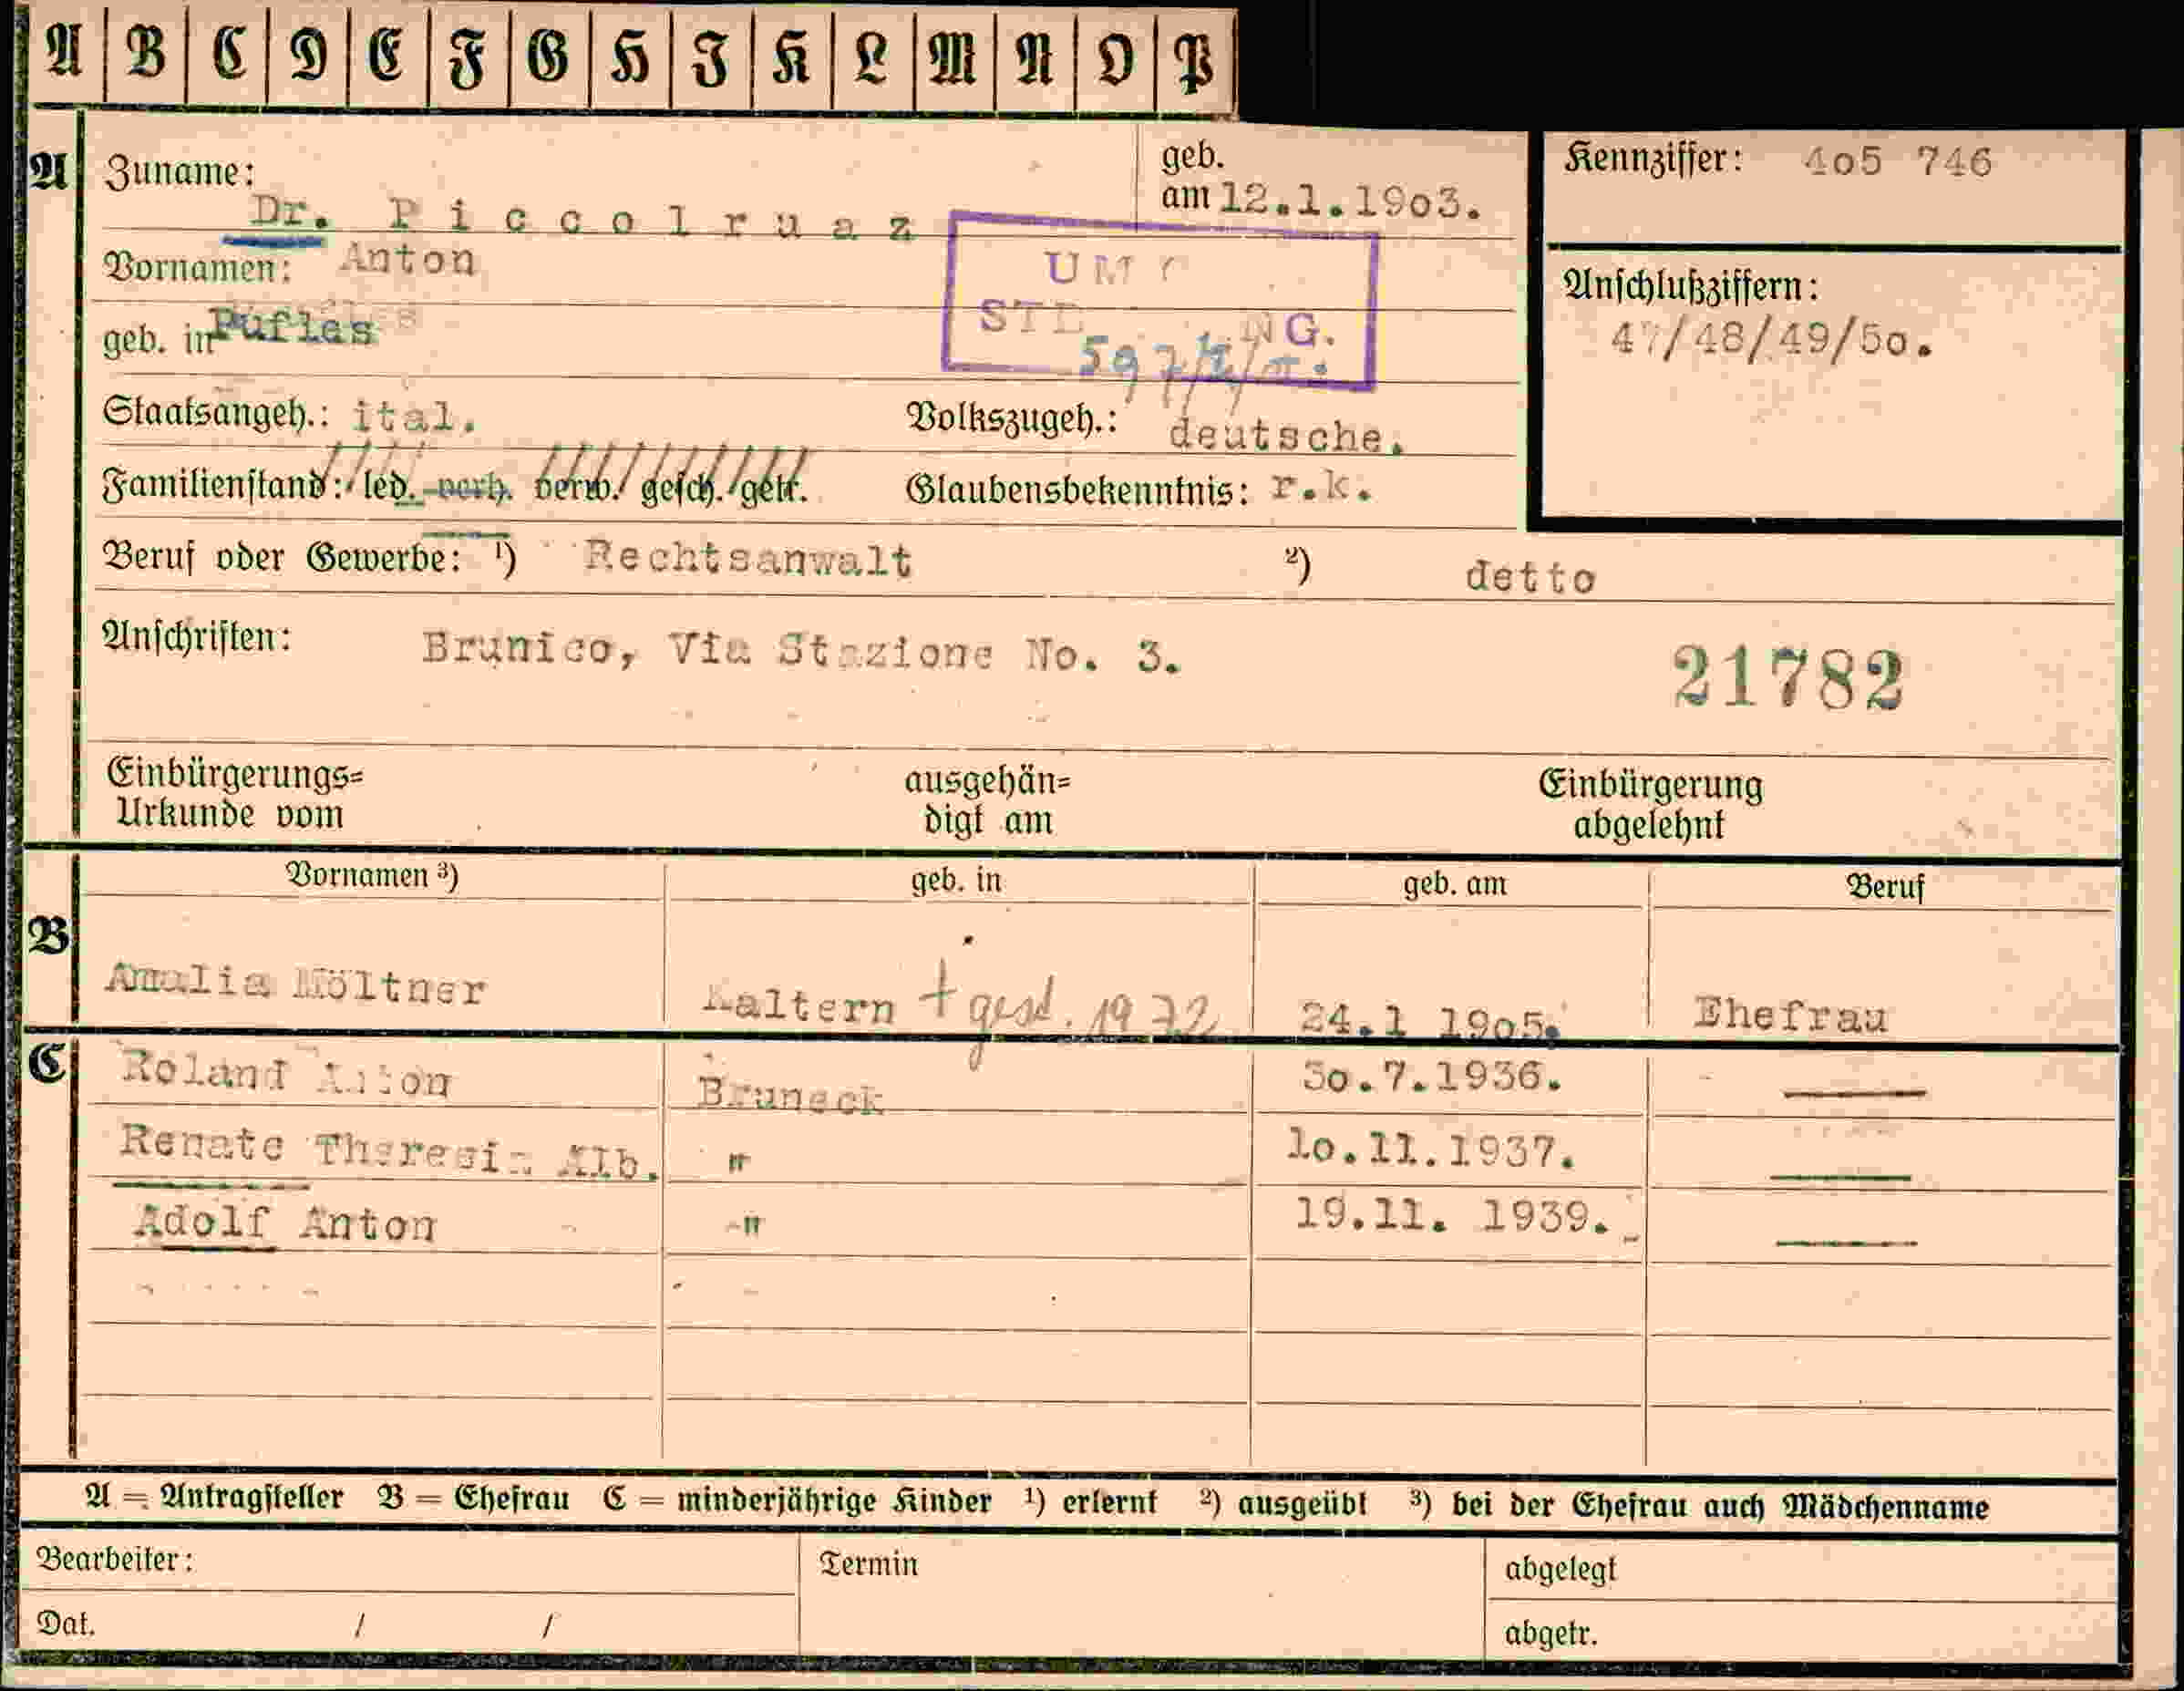 A B C D E F G H I K L M N O P
A Zuname: Dr. Piccolruaz geb. am 12.1.1903. Kennziffer: 4o5 746
Vornamen: Anton
geb. in Pufles
Anschlußziffern:
47/48/49/5o.
Staatsangeh.: ital. Volkszugeh.: deutsche.
Familienstand: led. verh. verw. gesch. getr. Glaubensbekenntnis: r.k.
Beruf oder Gewerbe: ¹) Rechtsanwalt ²) detto
Anschriften: Brunico, Via Stazione No. 3.
21782
Einbürgerungs= ausgehän= Einbürgerung
Urkunde vom digt am abgelehnt
Vornamen ³) geb. in geb. am Beruf
B
Amalia Möltner Kaltern + gest. 1972 24.1 19o5. Ehefrau
C Roland Anton Bruneck 3o.7.1936. —
Renate Theresia Alb. " 1o.11.1937. —
Adolf Anton -" 19.11. 1939. —
A = Antragsteller B = Ehefrau C = minderjährige Kinder ¹) erlernt ²) ausgeübt ³) bei der Ehefrau auch Mädchenname
Bearbeiter: Termin abgelegt
Dat. / / abgetr.